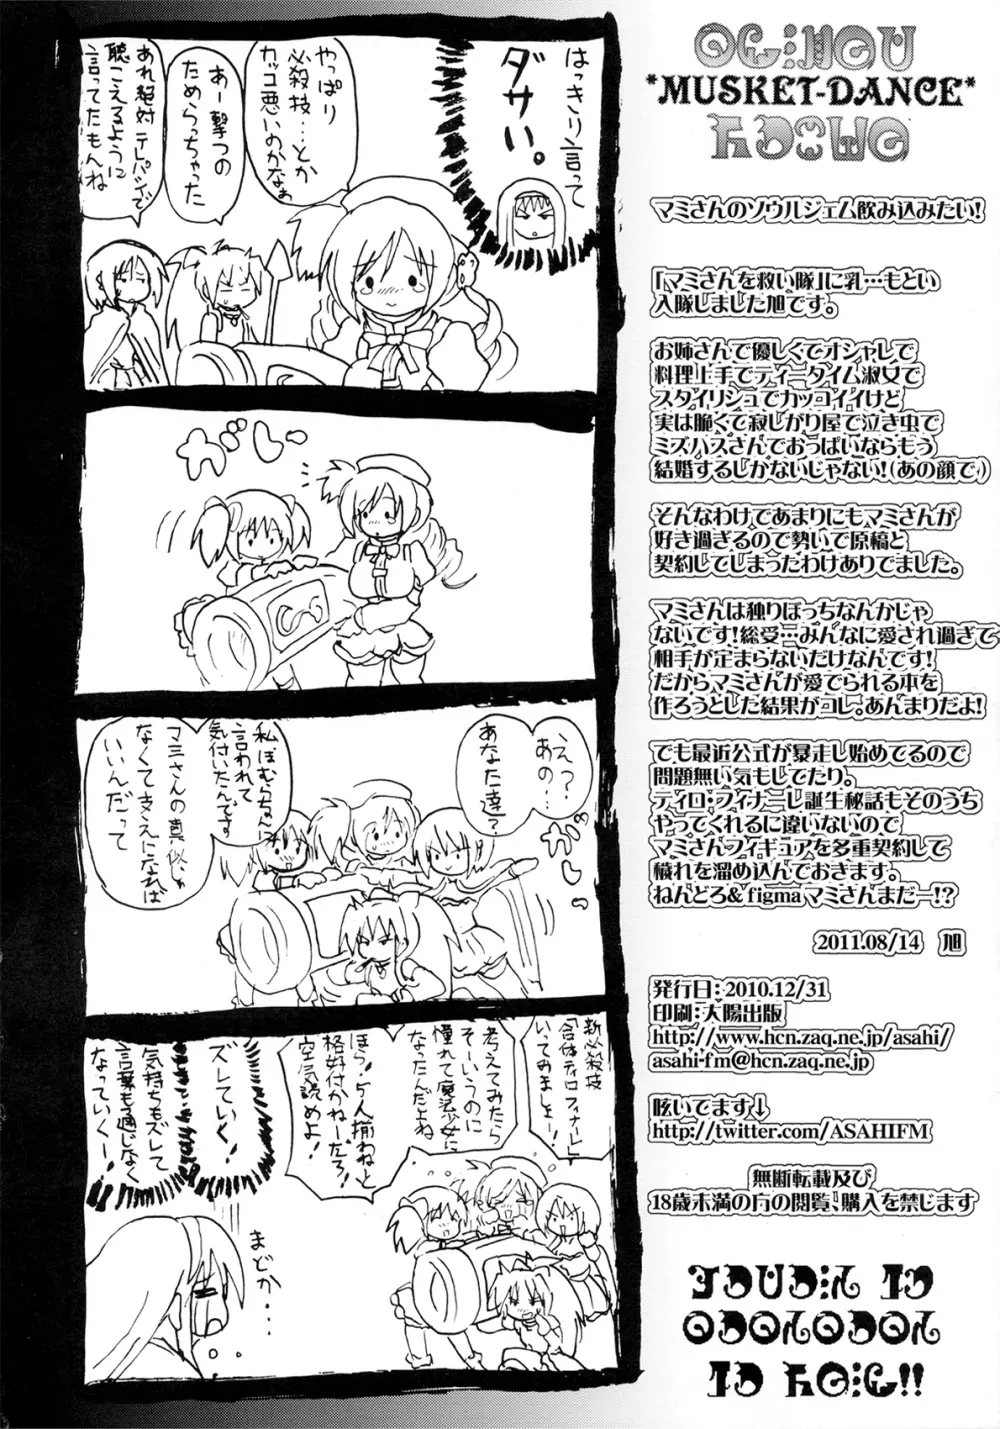 はっきり言って
ダサい。
やっぱり
必殺技…とか
カッコ悪いのかなぁ
あー撃つの
ためらっちゃった
あれ絶対テレパシーで
聴こえるように
言ってたもんね
がしっ
えっ?
あの…
あなた達?
がしっ
私ほむらちゃんに
言われて
気付いたんです
マミさんの真似じゃ
なくてささえになれば
いいんだって
新必殺技
「合体ティロフィナーレ」
いってみましょー!
考えてみたら
そーいうのに
憧れて魔法少女に
なったんだよね
ほら!5人揃わねと
格好付かねーだろ!
空気読めよ!
ズレていく!
気持ちもズレて
言葉も通じなく
なっていくー!
まどか…
*MUSKET-DANCE*
マミさんのソウルジェム飲み込みたい!
「マミさんを救い隊」に乳…もとい
入隊しました旭です。
お姉さんで優しくてオシャレで
料理上手でティータイム淑女で
スタイリシュでカッコイイけど
実は脆くて寂しがり屋で泣き虫で
ミズハスさんでおっぱいならもう
結婚するしかないじゃない!(あの顔で)
そんなわけであまりにもマミさんが
好き過ぎるので勢いで原稿と
契約してしまったわけありでました。
マミさんは独りぼっちなんかじゃ
ないです!総受…みんなに愛され過ぎて
相手が定まらないだけなんです!
だからマミさんが愛でられる本を
作ろうとした結果がコレ。あんまりだよ!
でも最近公式が暴走し始めてるので
問題無い気もしてたり。
ティロ・フィナーレ誕生秘話もそのうち
やってくれるに違いないので
マミさんフィギュアを多重契約して
穢れを溜め込んでおきます。
ねんどろ&figmaマミさんまだー!?
2011.08/14 旭
発行日:2010.12/31
印刷:大陽出版
http://www.hcn.zaq.ne.jp/asahi/
asahi-fm@hcn.zaq.ne.jp
呟いてます↓
http://twitter.com/ASAHIFM
無断転載及び
18歳未満の方の閲覧、購入を禁じます